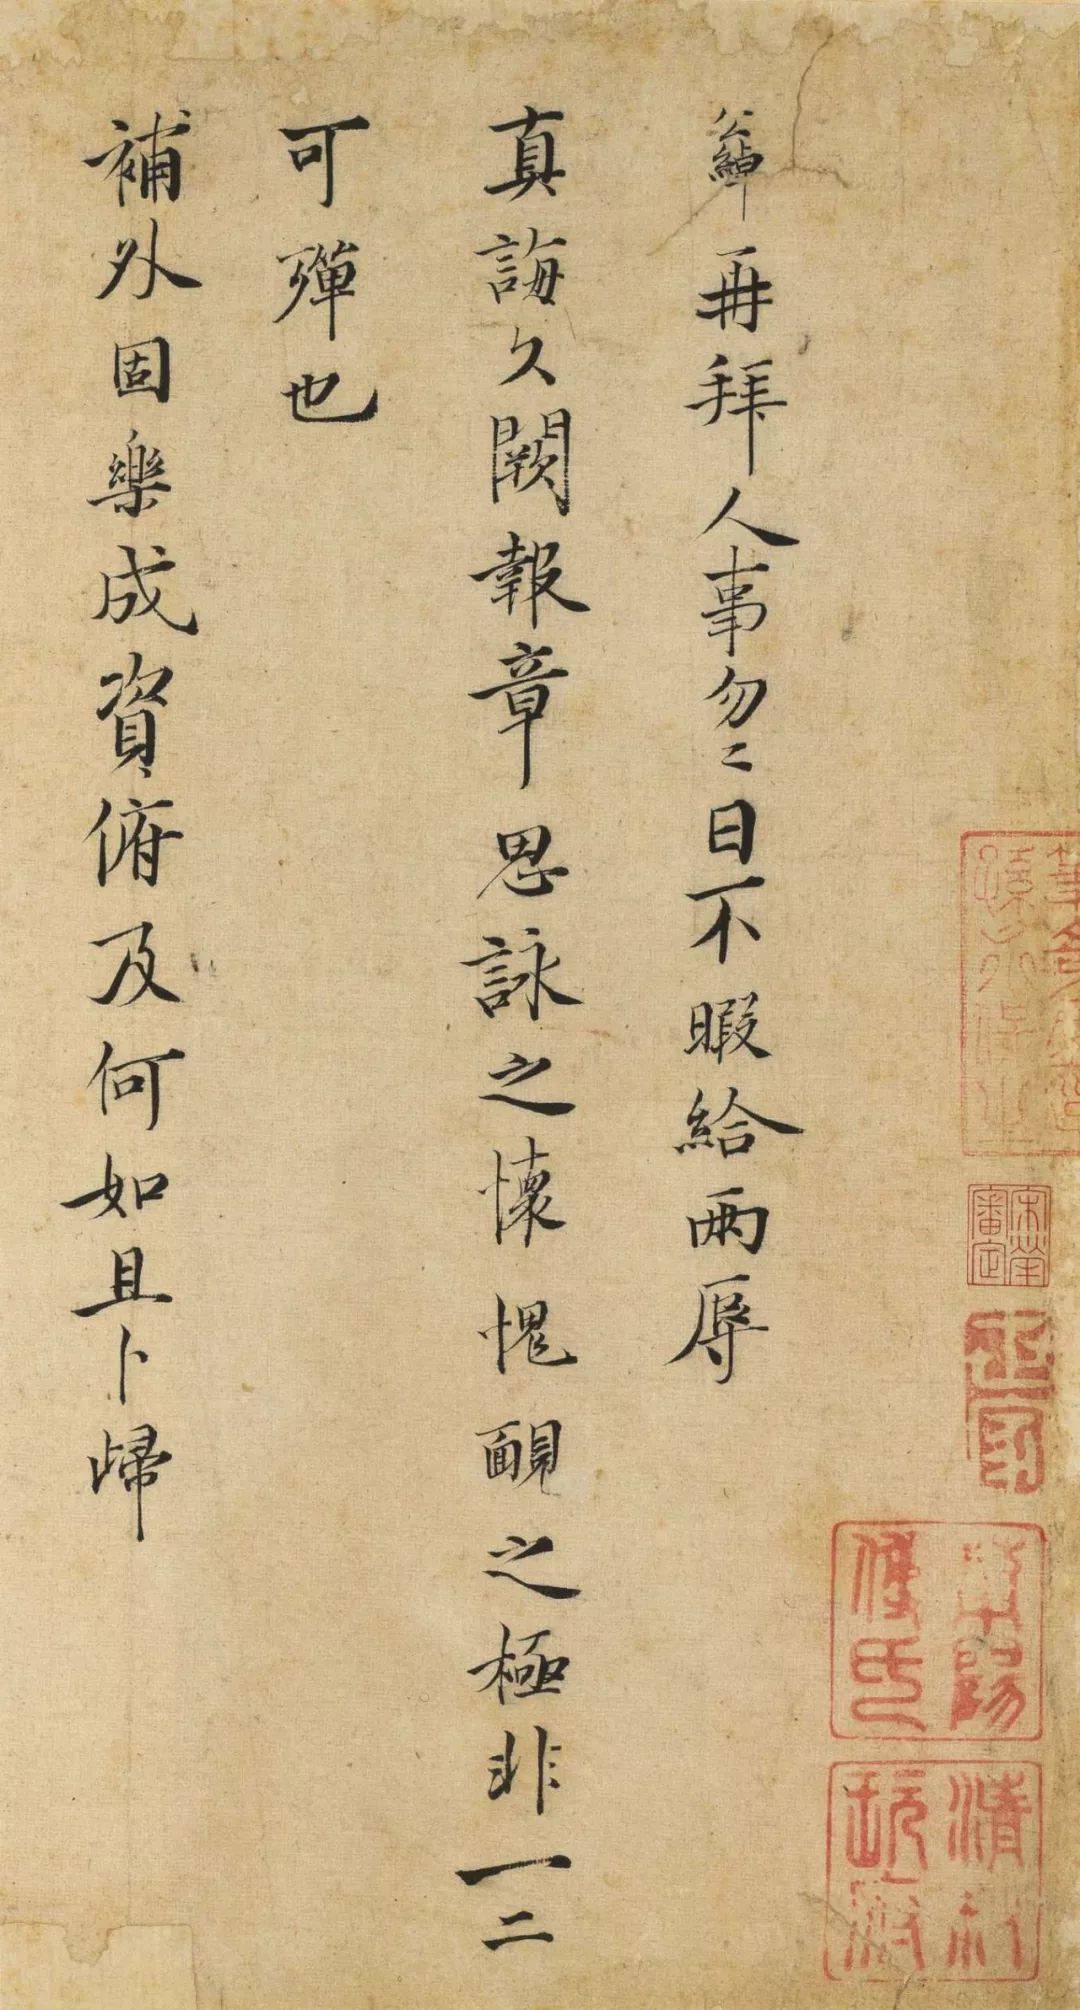 宋犖
審定
公綽再拜人事勿〻日不暇給兩辱
真誨久闕報章思詠之懷愧靦之極非一二
可殫也
補外固樂成資俯及何如且卜歸